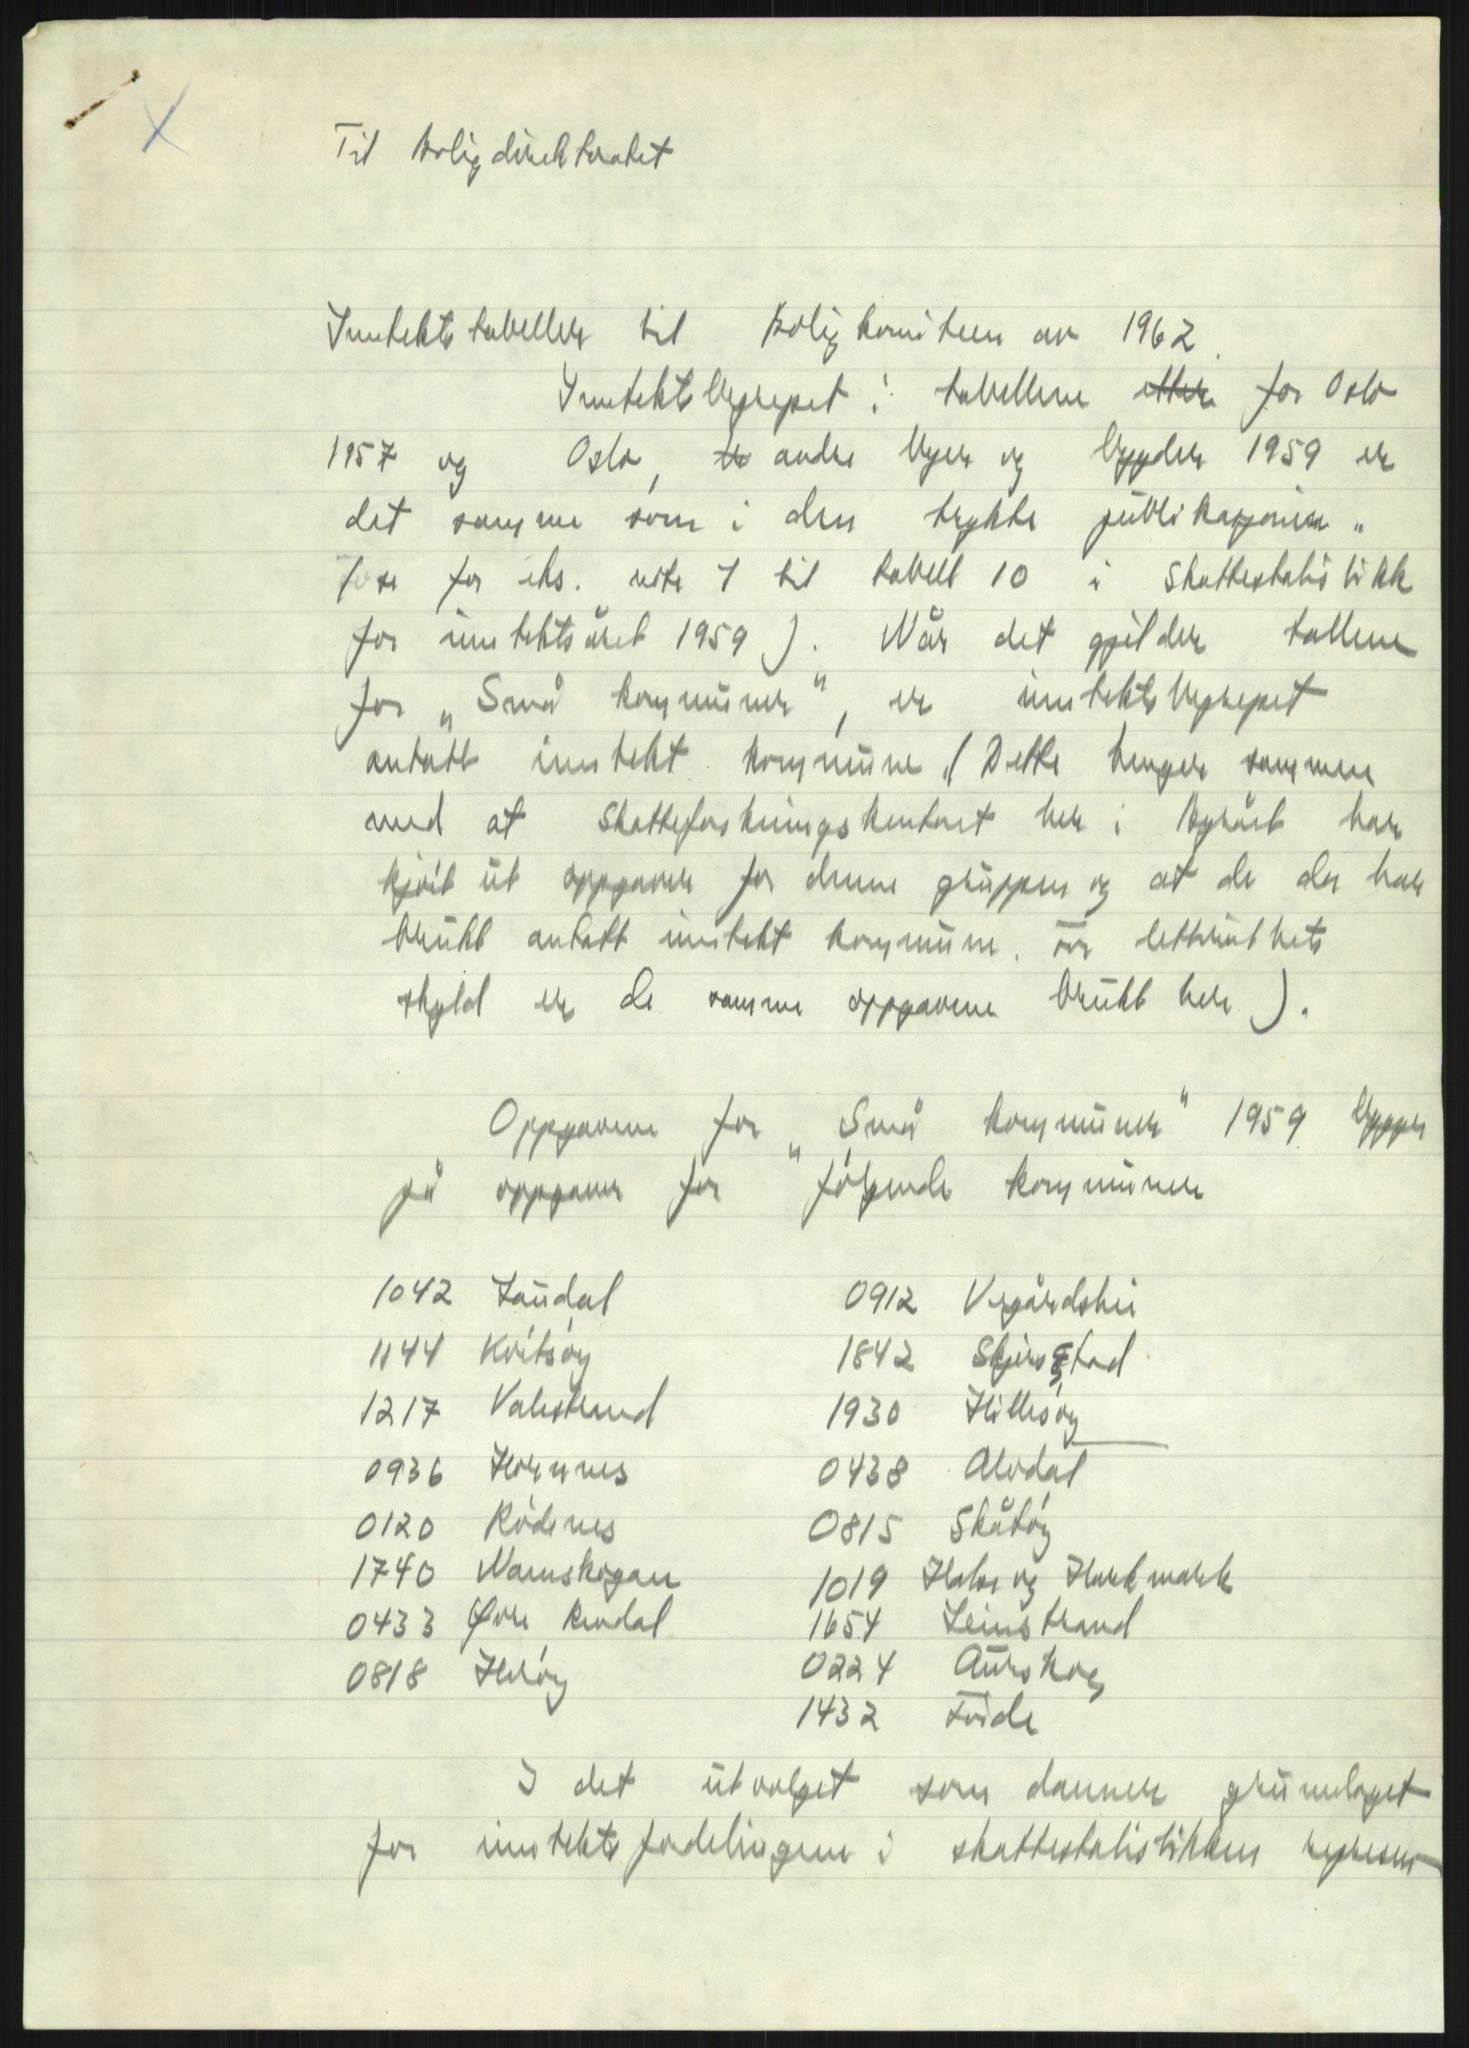 Til Boligdirektoratet
Inntektstabeller til Boligkomiteen av 1962.
Inntektsbegrepet i tabellene etter for Oslo
1957 og Oslo, andre byer og bygder 1959 er
det samme som i den trykte publikasjonen
se for eks. note 1 til tabell 10 i Skattestatistikk
for inntektsåret 1959). Når det gjelder tallene
for „Små kommuner", er inntektsbegrepet
antatt inntekt kommune. (Dette henger sammen
med at Skatteforskningskontoret her i Byrået har
kjørt ut oppgaver for denne gruppen og at de der har
brukt antatt inntekt kommune. For lettvinthets
skyld er de samme oppgavene brukt her).
Oppgavene for „Små kommuner" 1959 bygger
på oppgaver for følgende kommuner
1042 Laudal 0912 Vegårdshei
1144 Kvitsøy 1842 Skjerstad
1217 Valestrand 1930 Hillesøy
0936 Hornnes 0438 Alvdal
0120 Rødenes 0815 Skåtøy
1740 Namskogan 1019 Halse og Harkmark
0433 Øvre Rendal 1654 Leinstrand
0818 Herøy 0224 Aurskog
1432 Førde
I det utvalget som danner grunnlaget
for inntektsfordelingene i skattestatistikken represen